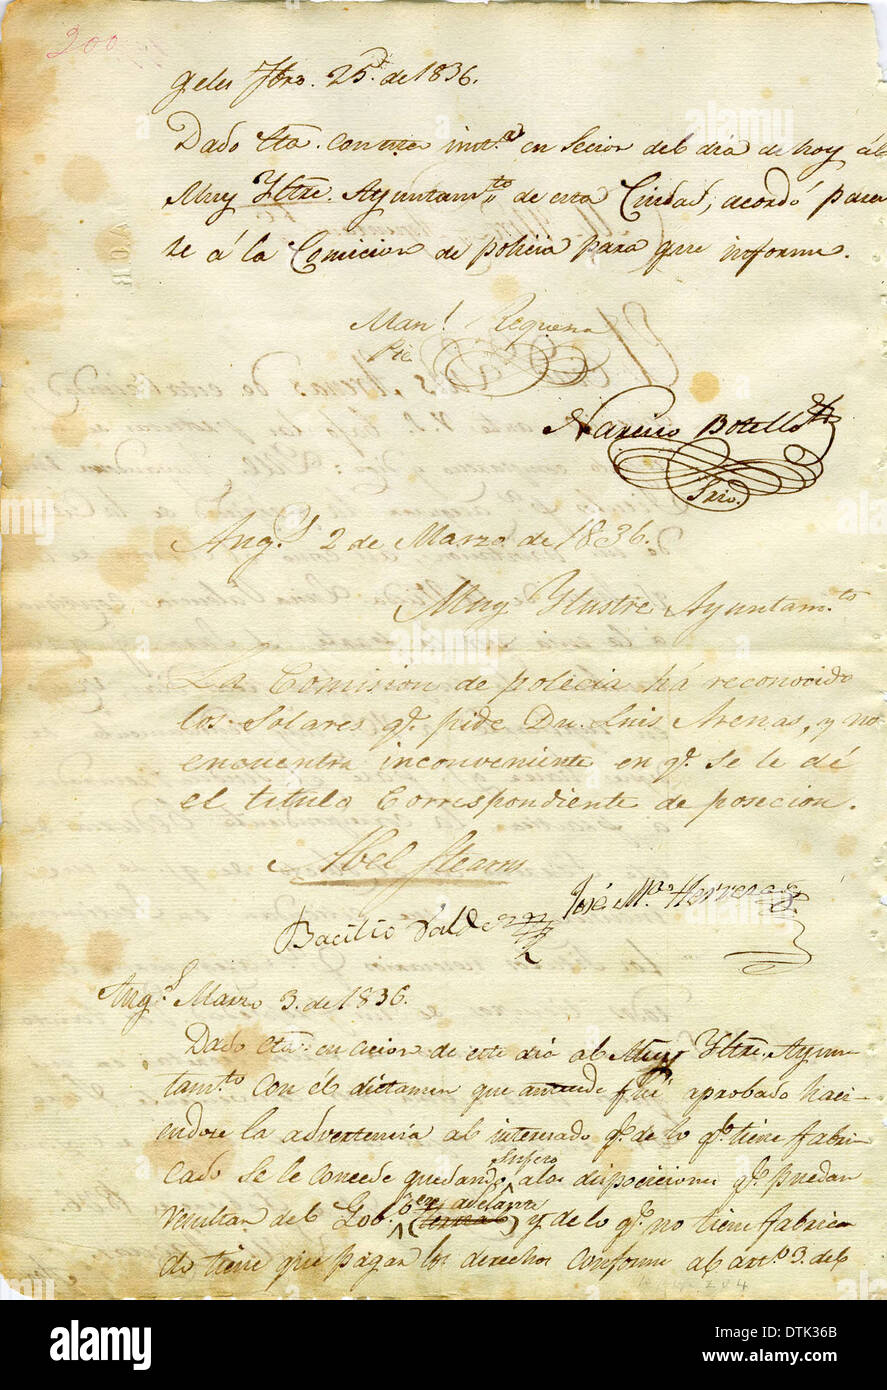 200
geles Fbro. 25,, de 1836.
Dado cta. con una inst.ª en secion del dia de hoy ál
Muy Yltre. Ayuntam.to de esta Ciudad, acordó pasa
se á la Comicion de policia para que informe.
Man.l Requena
Pte
Narciso Botello
Srio.
Ang.s 2 de Marzo de 1836.
Muy Ylustre Ayuntam.to
La Comision de polecia há reconocido
los solares q.e pide Dn. Luis Arenas, y no
encuentra inconveniente en q.e se le dé
el titulo Correspondiente de posecion.
Abel Stearns
José M.a Herrera
Bacilio Valdez
Ang.s Marzo 3. de 1836.
Dado cta. en cecion de este dia al Muy Yltre. Ayun-
tam.to con él dictamen que antecede fué aprobado haci-
endose la advertencia al interesado q.e de lo q.e tiene fabri-
cado se le concede quedando sugeto a las dispociciones q.e puedan
resultar del Gob.o en adelante y de lo q.e no tiene fabrica
do tiene que pagar los derechos conforme al art.o 3. del
alamy
DTK36B
www.alamy.com